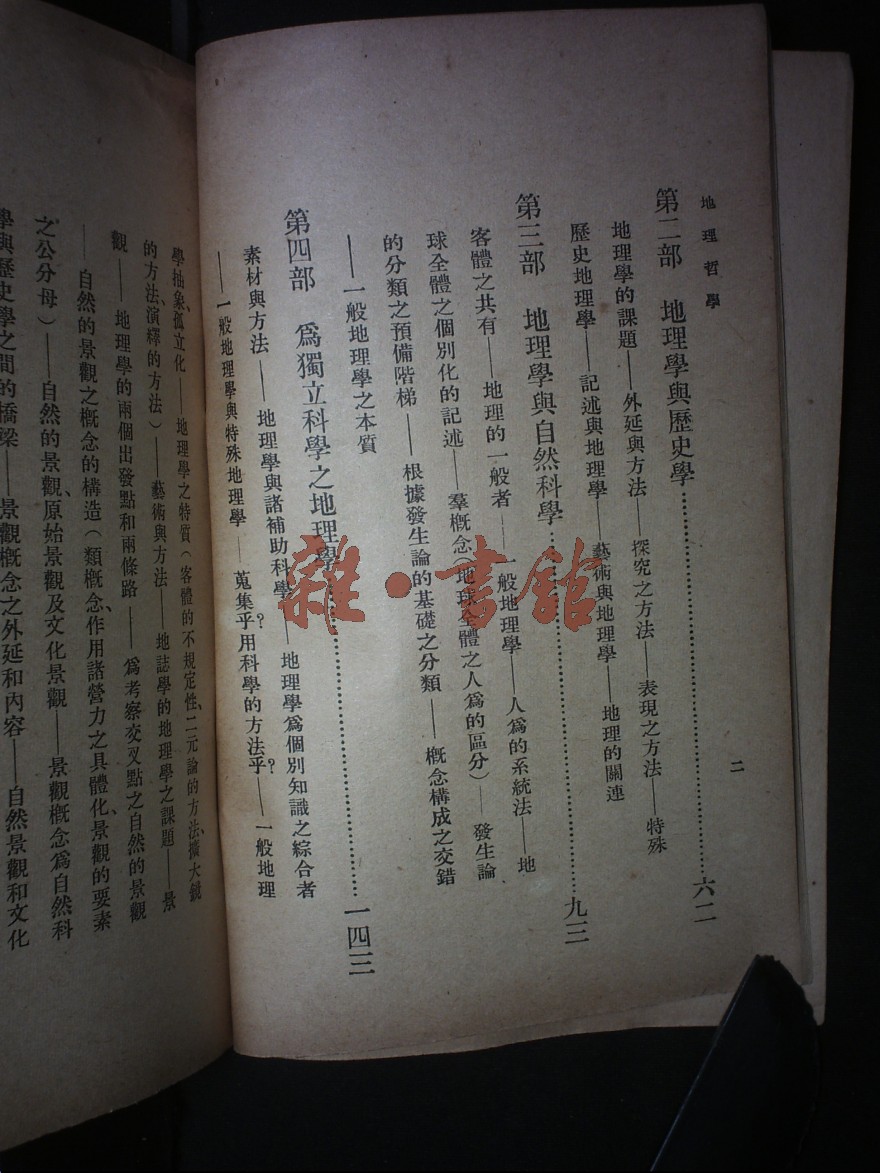 地理哲學
二
第二部　地理學與歷史學……………六二
地理學的課題——外延與方法——探究之方法——表現之方法——特殊
歷史地理學——記述與地理學——藝術與地理學——地理的關連
第三部　地理學與自然科學……………九三
客體之共有——地理的一般者——一般地理學——人爲的系統法——地
球全體之個別化的記述——羣概念(地球全體之人爲的區分)——發生論
的分類之預備階梯——根據發生論的基礎之分類——概念構成之交錯
——一般地理學之本質
第四部　爲獨立科學之地理學……………一四三
素材與方法——地理學與諸補助科學——地理學爲個別知識之綜合者
——一般地理學與特殊地理學——蒐集乎?用科學的方法乎?——一般地理
學抽象、孤立化——地理學之特質(客體的不規定性、二元論的方法、擴大鏡
的方法、演繹的方法)——藝術與方法　地誌學的地理學之課題——景
觀——地理學的兩個出發點和兩條路——爲考察交叉點之自然的景觀
——自然的景觀之概念的構造(類概念、作用諸營力之具體化、景觀的要素
之公分母)——自然的景觀、原始景觀及文化景觀——景觀概念爲自然科
學與歷史學之間的橋梁——景觀概念之外延和內容——自然景觀和文化
雜·書館